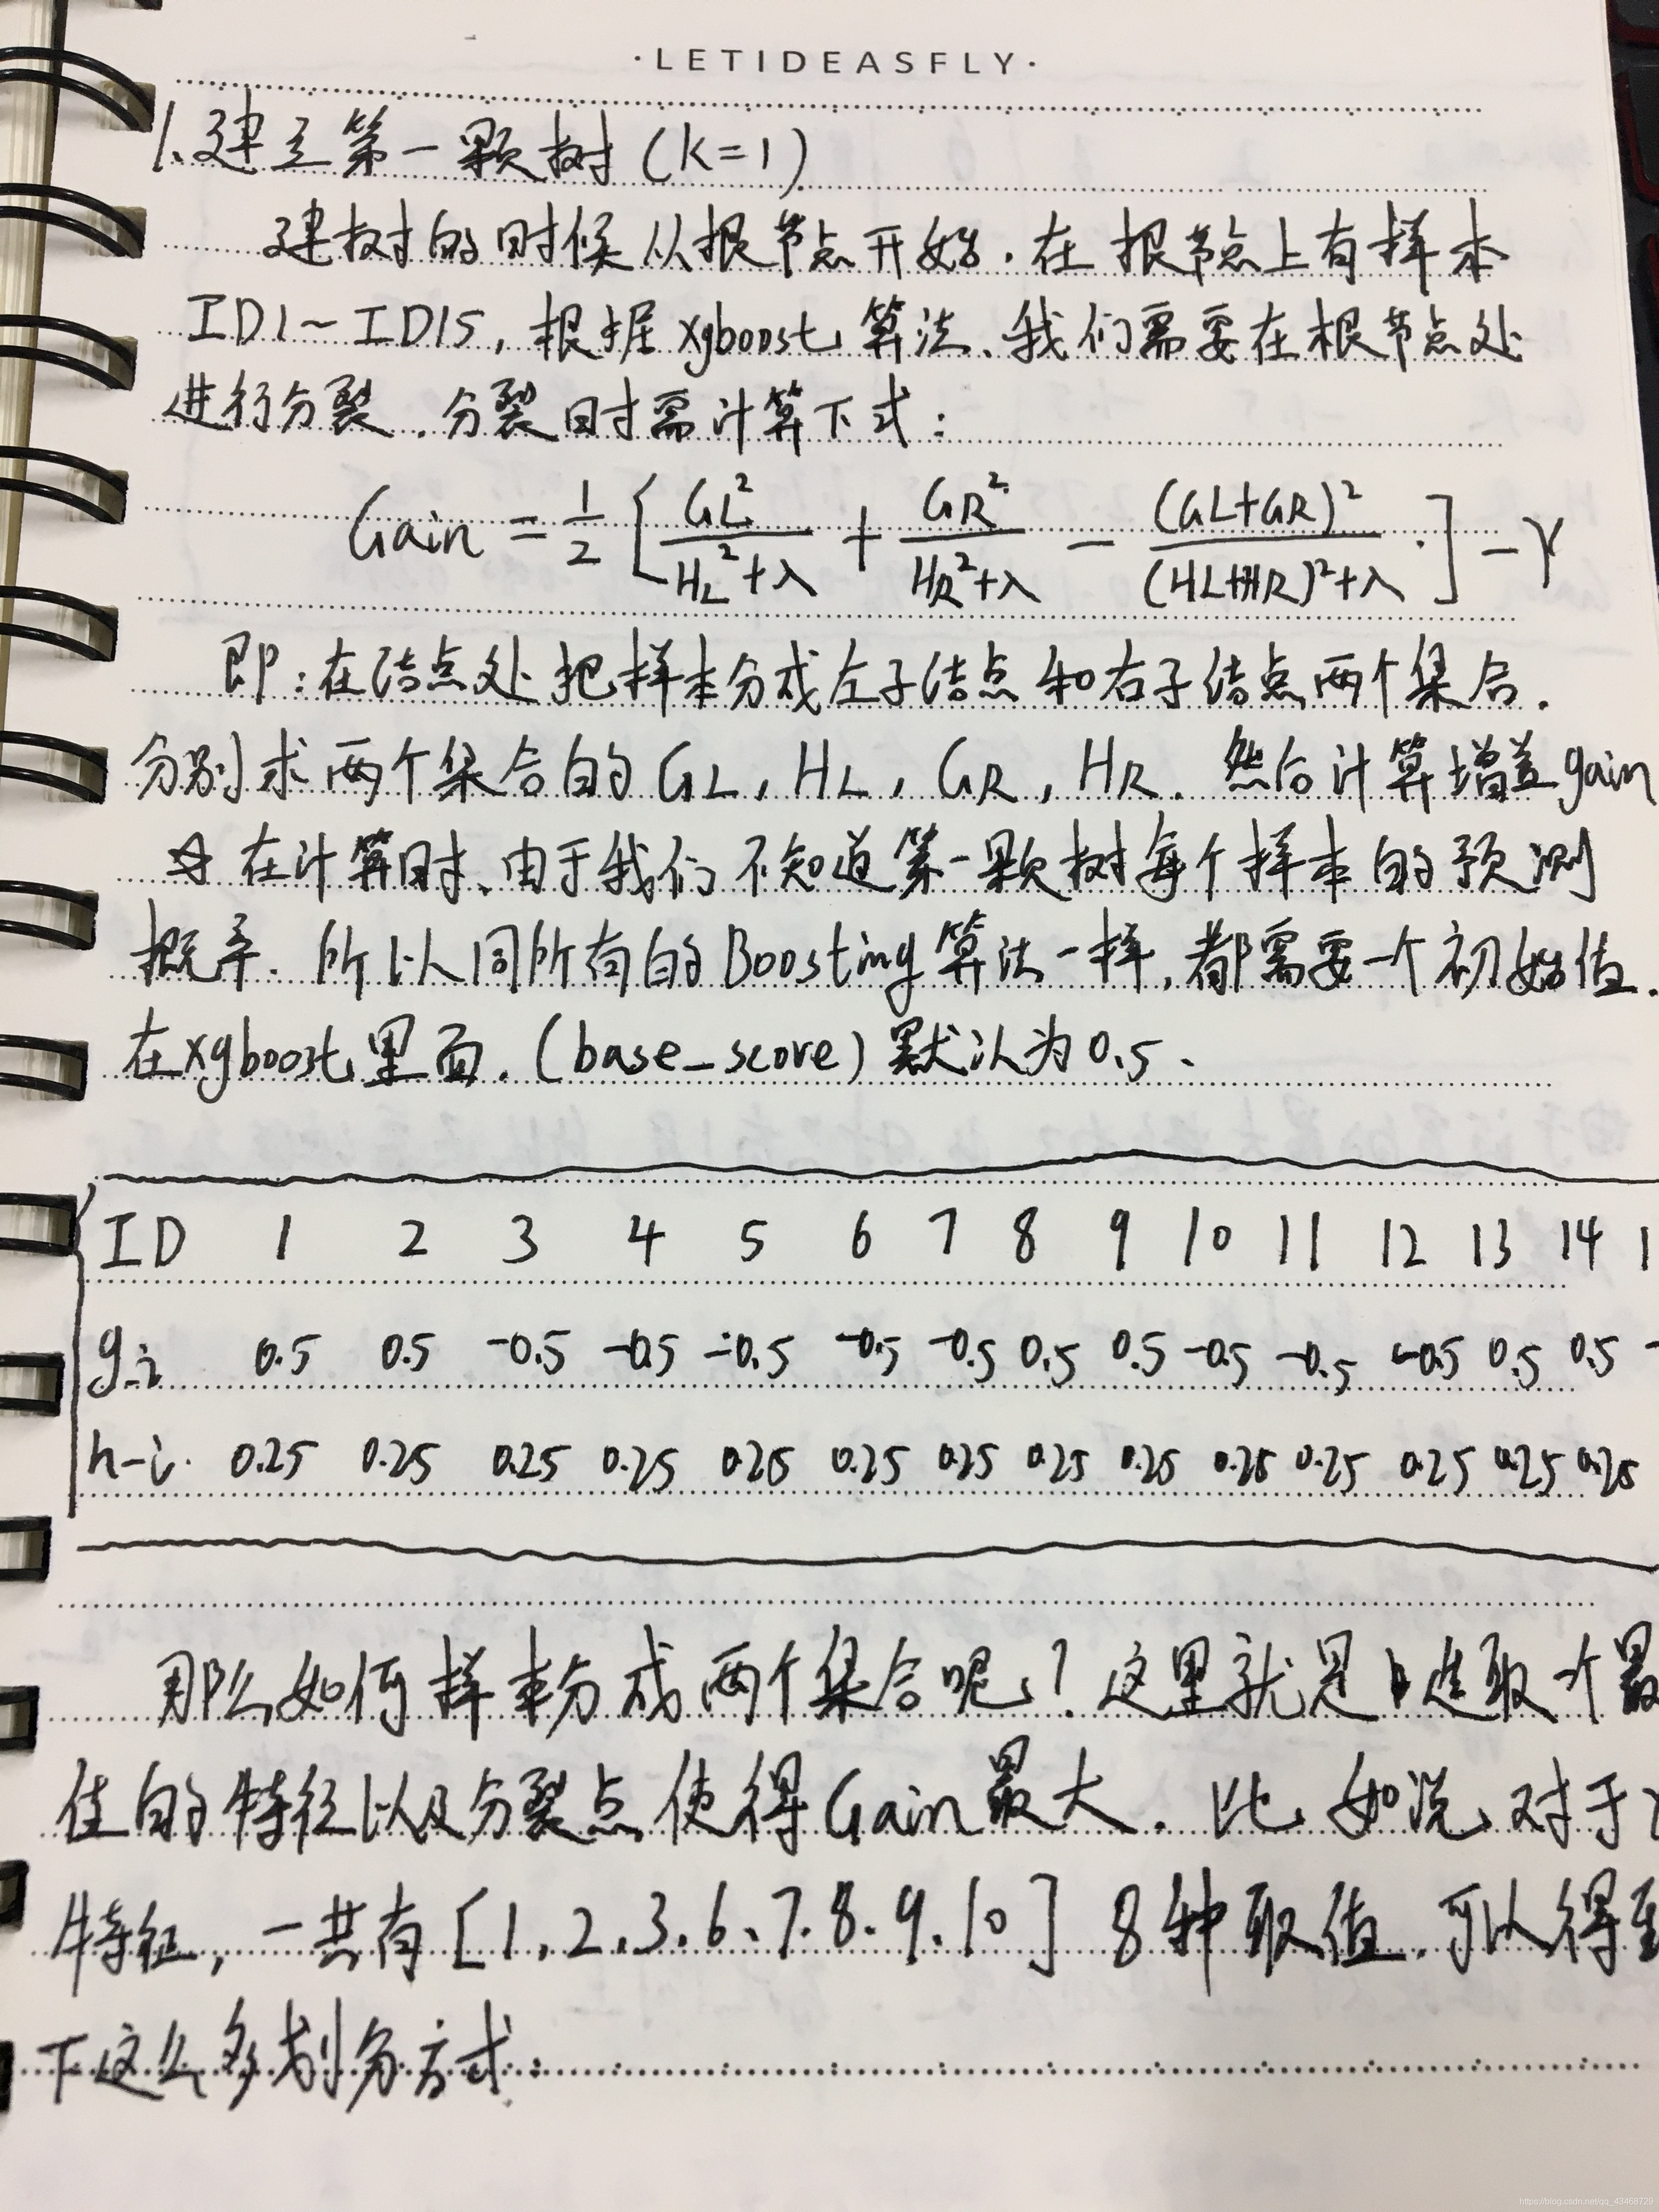 ·LETIDEASFLY·
1.建立第一颗树(K=1)
建树的时候从根节点开始.在根节点上有样本
ID1~ID15,根据xgboost算法、我们需要在根节点处
进行分裂.分裂时需计算下式:
Gain = 1/2 [ GL²/(HL²+λ) + GR²/(HR²+λ) - (GL+GR)²/((HL+HR)²+λ) ] - γ
即:在结点处把样本分成左子结点和右子结点两个集合.
分别求两个集合的GL,HL,GR,HR.然后计算增益gain
在计算时、由于我们不知道第一颗树每个样本的预测
概率.所以同所有的Boosting算法一样,都需要一个初始值.
在xgboost里面.(base_score)默认为0.5、
ID 1 2 3 4 5 6 7 8 9 10 11 12 13 14 1
g_i 0.5 0.5 -0.5 -0.5 -0.5 -0.5 -0.5 0.5 0.5 -0.5 -0.5 -0.5 0.5 0.5 -
h-i. 0.25 0.25 0.25 0.25 0.25 0.25 0.25 0.25 0.25 0.25 0.25 0.25 0.25 0.25
那么如何样本分成两个集合呢?这里就是选取一个最
佳的特征以及分裂点使得Gain最大.比如说对于
特征,一共有[1,2,3.6、7.8.9.10]8种取值.可以得到
下这么多划分方式.
https://blog.csdn.net/qq_43468729